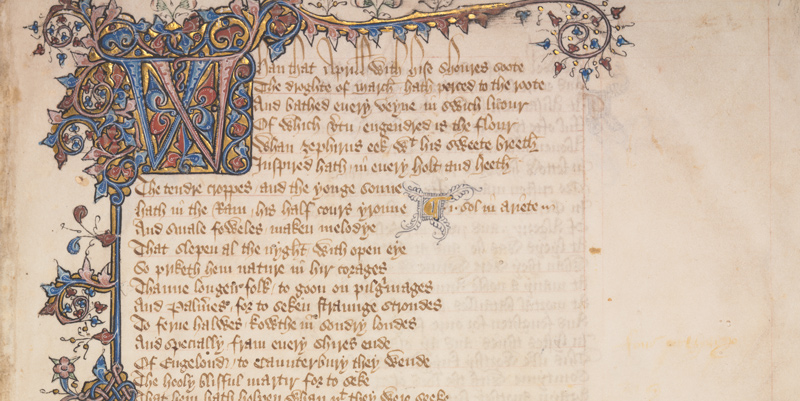 Whan that Aprill with hise shoures soote
The droghte of march hath perced to the roote
And bathed euery veyne in swich licour
Of which vtu engendred is the flour
Whan zephirus eek wt his sweete breeth
Inspired hath in euery holt and heeth
The tendre croppes and the yonge sonne
hath in the Ram his half cours yronne .i. sol in ariete
And smale foweles maken melodye
That slepen al the nyght with open eye
So priketh hem nature in hir corages
Thanne longen folk to goon on pilgrimages
And Palmeres for to seken straunge strondes
To ferne halwes kowthe in sondry londes
And specially fram euery shires ende
Of Engelond to Caunterbury they wende
The hooly blisful martir for to seke
That hem hath holpen whan þt they were seeke